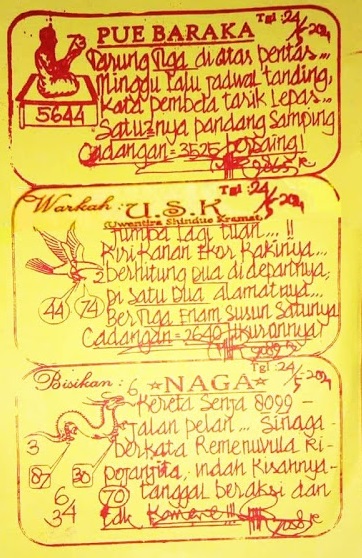 Tgl : 24/5-2024
PUE BARAKA
Tarung Tiga di atas pentas...
Minggu lalu jadwal tanding,
Kata pembela tasik Lepas...
Satu2nya pandang Samping
Cadangan = 3525
5644
Tgl : 24/5-2024
Warkah : U.S.K
(Uwentira Shindue Kramat)
Jumpa lagi tuan... !!
Kiri Kanan Ekor Kakinya...
berhitung dua di depatnya,
Di satu Dua alamatnya...
Ber Tiga Enam Susun Satunya
Cadangan = 2640
44 74
Tgl : 24/5-2024
Bisikan : 6 ★NAGA★
Kereta Senja 8099 -
Jalan pelan... Sinaga -
berkata
indah kisahnya -
tanggal beraksi dan
3
87 36
6 70
34